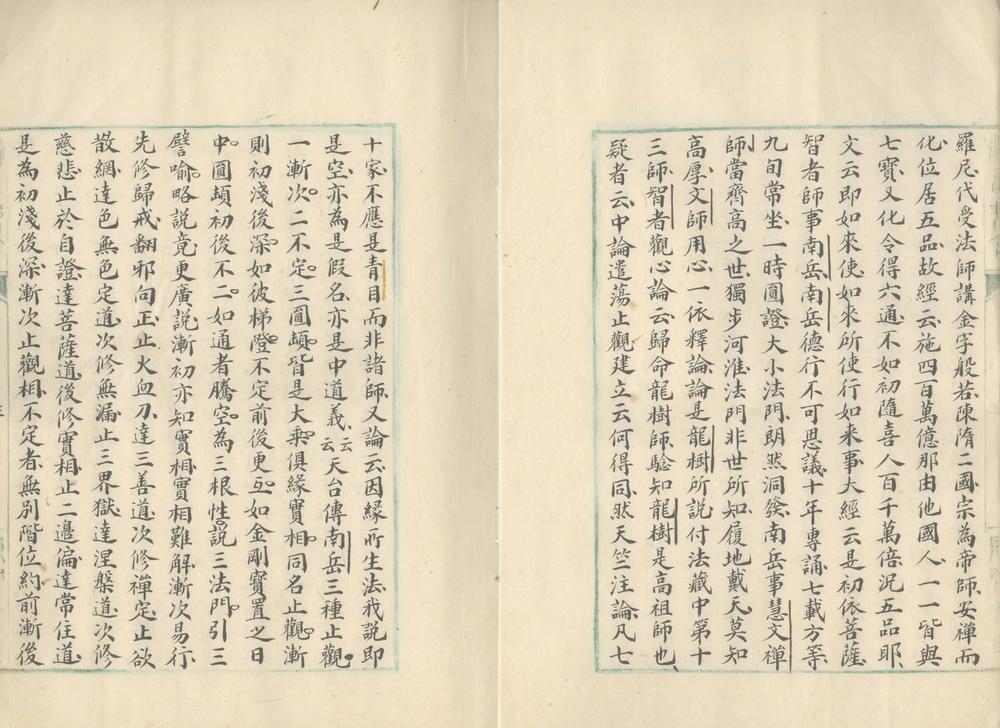 羅尼代受法師講金字般若陳隋二國宗為帝師安禪而
化位居五品故經云施四百萬億那由他國人一一皆與
七寶又化令得六通不如初隨喜人百千萬倍況五品耶
文云即如來使如來所使行如来事大經云是初依菩薩
智者師事南岳南岳德行不可思議十年專誦七載方等
九旬常坐一時圓證大小法門朗然洞發南岳事慧文禪
師當齊高之世獨步河淮法門非世所知履地戴天莫知
高厚文師用心一依釋論論是龍樹所說付法藏中第十
三師智者觀心論云歸命龍樹師驗知龍樹是高祖師也
疑者云中論遣蕩止觀建立云何得同然天竺注論凡七
十家不應是青目而非諸師又論云因緣所生法我說即
是空亦為是假名亦是中道義云云天台傳南岳三種止觀
一漸次二不定三圓頓皆是大乘俱緣實相同名止觀漸
則初淺後深如彼梯隥不定前後更互如金剛寶置之日
中圓頓初後不二如通者騰空為三根性說三法門引三
譬喻略說竟更廣說漸初亦知實相實相難解漸次易行
先修歸戒翻邪向正止火血刀達三善道次修禪定止欲
散網達色無色定道次修無漏止三界獄達涅槃道次修
慈悲止於自證達菩薩道後修實相止二邊偏達常住道
是為初淺後深漸次止觀相不定者無別階位約前漸後